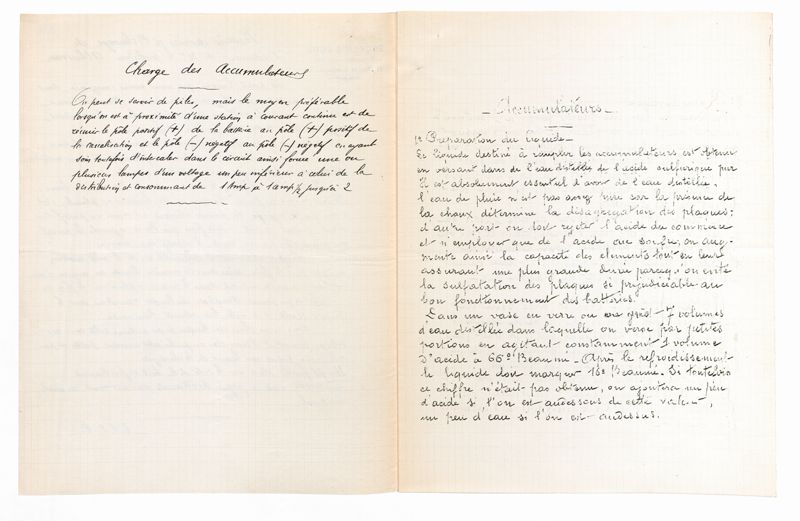 Charge des Accumulateurs
On peut se servir de piles, mais le moyen préférable
lorsqu'on est à proximité d'une station à courant continu est de
réunir le pôle positif (+) de la batterie au pôle (+) positif de
la canalisation et le pôle (-) négatif au pôle (-) négatif en ayant
soin toutefois d'intercaler dans le circuit ainsi formé une ou
plusieurs lampes d'un voltage un peu inférieur à celui de la
distribution et consommant de 1 Amp à 1 amp ½ jusqu'à 2
Accumulateurs
1º Préparation du liquide
Le liquide destiné à remplir les accumulateurs est obtenu
en versant dans de l'eau distillée de l'acide sulfurique pur
Il est absolument essentiel d'avoir de l'eau distillée.
l'eau de pluie n'est pas assez pure car la présence de
la chaux détermine la désagrégation des plaques;
d'autre part on doit rejeter l'acide du commerce
et n'employer que de l'acide au soufre, on aug-
mente ainsi la capacité des éléments tout en leur
assurant une plus grande durée parcequ'on évite
la sulfatation des plaques si préjudiciable au
bon fonctionnement des batteries.
Dans un vase en verre ou en grès - 7 volumes
d'eau distillée dans laquelle on verse par petites
portions en agitant constamment 1 volume
d'acide à 66º Beaumé - Après le refroidissement
le liquide doit marquer 18º Beaumé. Si toutefois
ce chiffre n'était pas obtenu, on ajoutera un peu
d'acide si l'on est audessous de cette valeur,
un peu d'eau si l'on est audessus.